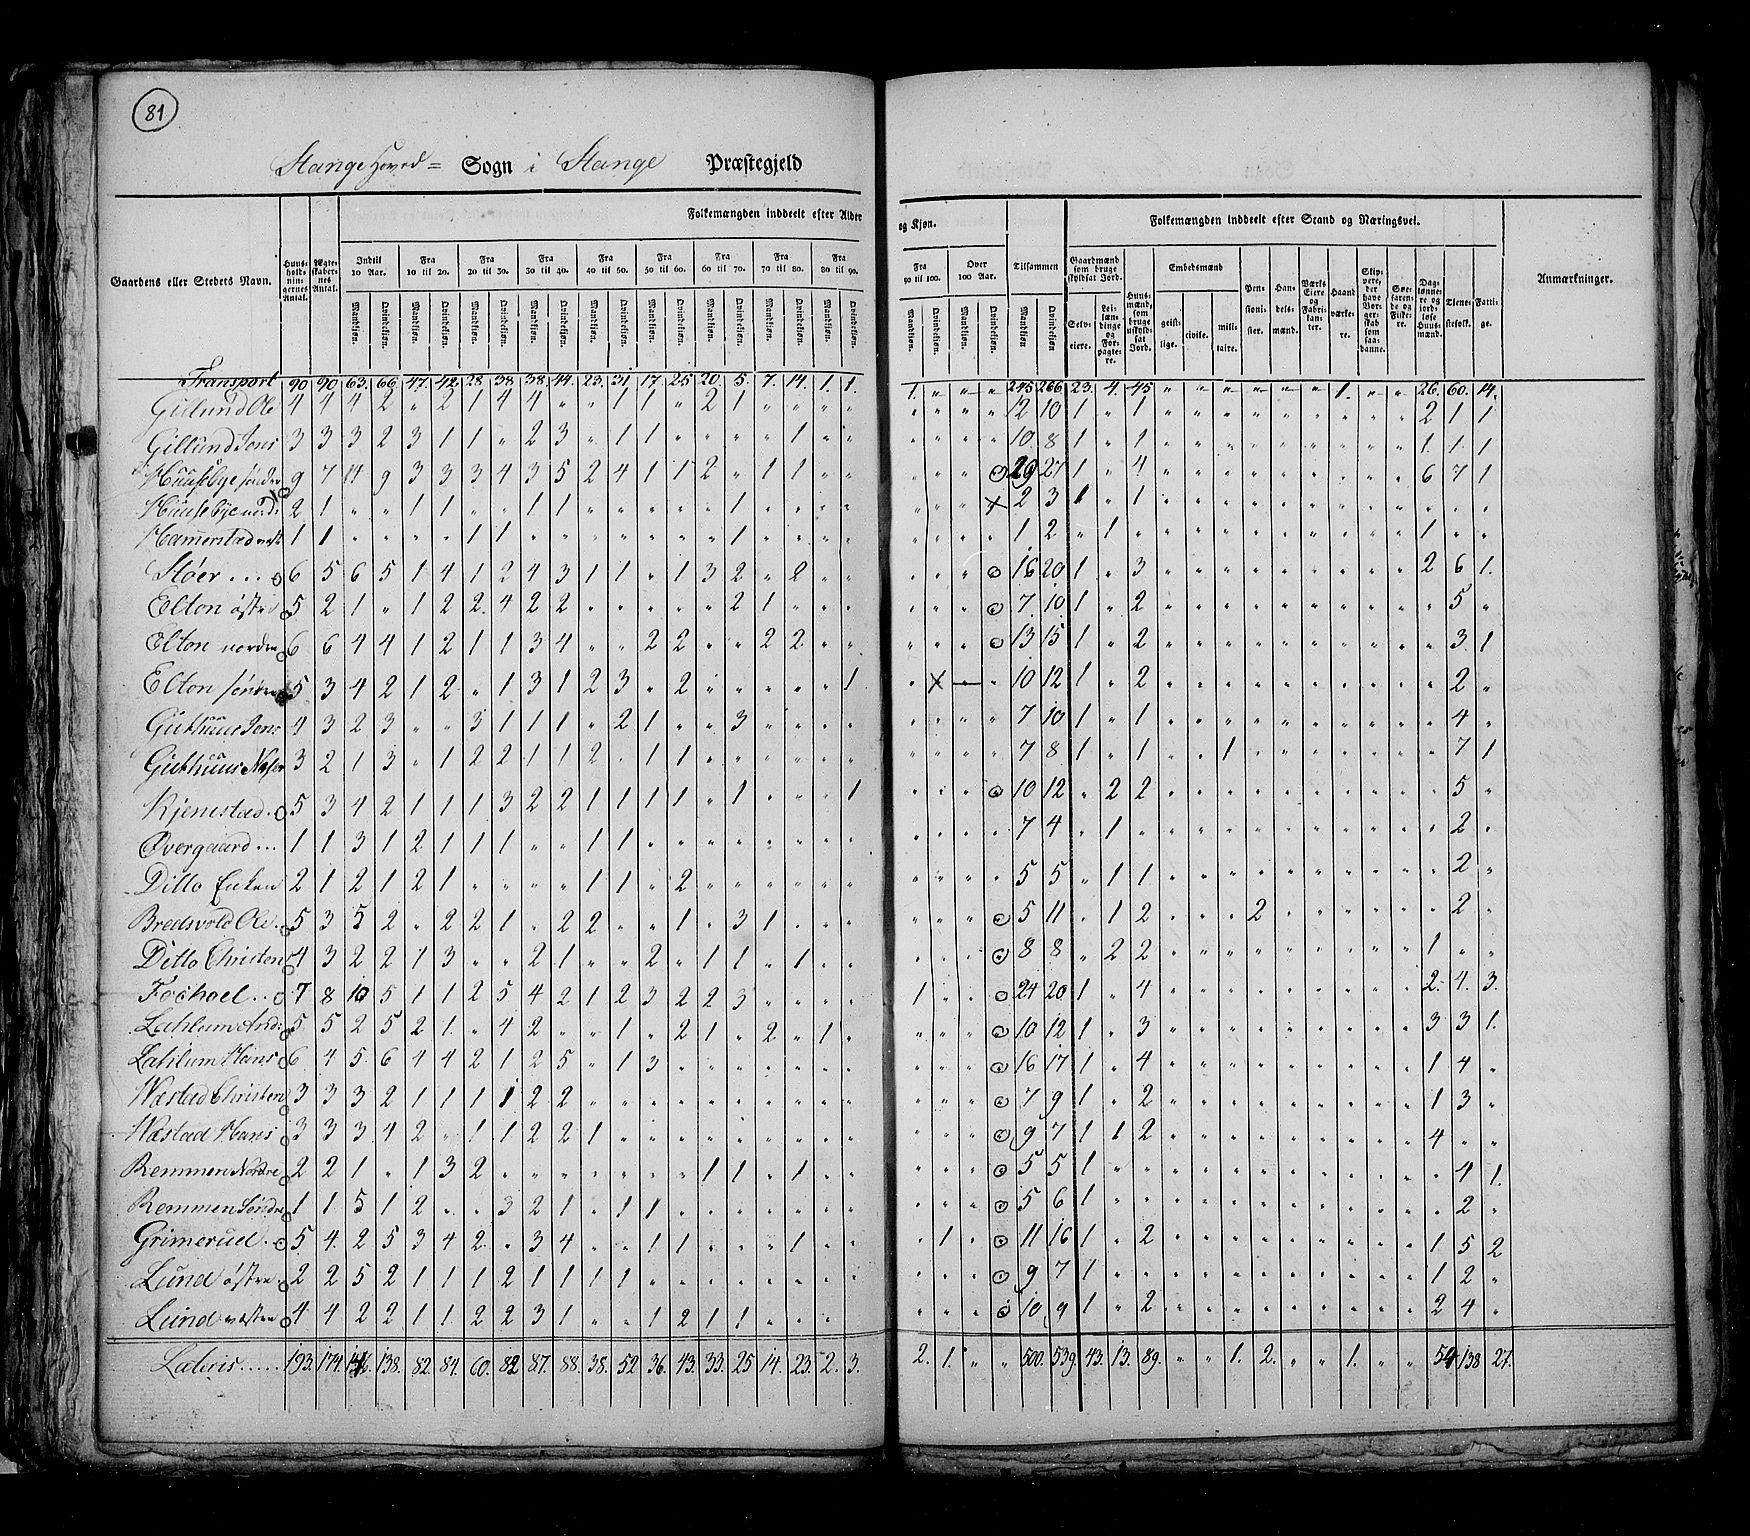 81
Stange Hoved = Sogn i Stange Præstegjeld
Gaardens eller Stedets Navn. Huus-holdnin-gernes Antal. Ægte-skaber-nes Antal. Folkemængden inddeelt efter Alder og Kjøn. Tilsammen Folkemængden inddeelt efter Stand og Næringsvei. Anmærkninger.
Indtil 10 Aar. Fra 10 til 20. Fra 20 til 30. Fra 30 til 40. Fra 40 til 50. Fra 50 til 60. Fra 60 til 70. Fra 70 til 80. Fra 80 til 90. Fra 90 til 100. Over 100 Aar.
Gaardmænd som bruge skyldsat Jord. Huus-mænd, som bruge uskyld-sat Jord. Embedsmænd Pen-sioni-ster. Han-dels-mænd. Værks Eiere og Fabri-kan-ter. Haand-værke-re. Skip-pere, der have Bor-ger-skab som saa-danne. Søe-faren-de og Fiske-re. Dag-lønne-re og jord-løse Huus-mænd. Tjene-stefolk. Fatti-ge.
Selv-eiere. Lei-læn-dinge og For-pagte-re. geist-lige. civile. mili-taire.
Mandkjøn. Qvindekjøn. Mandkjøn. Qvindekjøn. Mandkjøn. Qvindekjøn. Mandkjøn. Qvindekjøn. Mandkjøn. Qvindekjøn. Mandkjøn. Qvindekjøn. Mandkjøn. Qvindekjøn. Mandkjøn. Qvindekjøn. Mandkjøn. Qvindekjøn. Mandkjøn. Qvindekjøn. Mandkjøn. Qvindekjøn. Mandkjøn. Qvindekjøn.
Transport 90 90 63. 66. 47. 42. 28 38. 38. 44. 23. 31. 17. 25 20. 5. 7. 14. 1. 1. 1. " " " 245 266 23. 4. 45 " " " " " " 1. " " 26. 60. 14.
Gillund Ole 4 4 4 2 " 2 1 4 4 " " 1 1 " 2 1 " " " " " " " " 12 10 1 " 1 " " " " " " " " " 2 1 1
Gillund Jens 3 3 3 2 3 1 1 " 2 3 " 1 1 " " " " 1 " " " " " " 10 8 1 " 1 " " " " " " " " " 1 1 1
Huusebye søndre 9 7 14 9 3 3 3 4 3 5 2 4 1 1 2 " 1 1 " " " " " 29 27 1 " 4 " " " " " " " " " 6 7 1
Huusebye nord 2 1 " " 1 1 " " 1 1 " " " " " 1 " " " " " " " 2 3 1 " 1 " " " " " " " " " " " "
Hamerstad vest 1 1 " " " " 1 1 " " " " " " " 1 " " " " " " " " 1 2 " 1 " " " " " " " " " " 1 " "
Støer... 6 5 6 5 1 4 1 2 4 3 1 1 " 1 3 2 " 2 " " " " " 16 20 1 " 3 " " " " " " " " " 2 6 1.
Elton østre 5 2 1 " 1 2 2. 4 2 2 " " " " " 2 1 " " " " " " 7. 10 1 " 2 " " " " " " " " " " 5 "
Elton nordre 6 6 4 4 1 2 1 1 3 4 " " 2 2 " " 2 2 " " " " " 13 15 1 " 2 " " " " " " " " " " 3. 1
Elton søndre 5 3 4 2 1 2 " 1 3 1 2 3 " 2 " " " " " 1 " " 10 12 1 " 2 " " " " " " " " " " 2 "
Guthuus Jens 4 3 2 3 " " 3 1 1 1 " 2 1 " " 3 " " " " " " " " 7 10 1 " 1 " " " " " " " " " " 4 "
Guthuus 3 2 1 3 " 1 2 2 1 1 2 " 1 1 " " " " " " " " " " 7 8. 1 " 1 " " 1 " " " " " " " 7 1
Kjenestad. 5 3 4 2 1 1 1 3 2 2 1 1 1 1 " 1 " " " 1 " " " 10 12 " 2 2 " " " " " " " " " " 5 "
Øvergaard... 1 1 3 1 2 1 1 1 " " 1 1 " " " " " " " " " " " " 7 4 " 1 " " " " " " " " " " " 2 "
Ditto Enken 2 1 2 1 2 1 " " " " 1 1 " 2 " " " " " " " " " " 5 5 " 1 1 " " " " " " " " " " 2 "
Bredsvold Ole. 5 3 5 2 " 2 2 1 " 2 2 " " 1 " 3 1 " " " " " " 5 11 " 1 2 " " " 2 " " " " " " 2 "
Ditto Christen 4 3 2 2 1 3 " " 2 1 " " 2 " 1 1 " 1 " " " " " 8 8 " 2 2 " " " " " " " " " 1 " "
Fochoel.. 7 8 10 5 1 1 2 5 4 2 1 2 3 2 2 3 " " " " 1 " " 24 20 1 " 4 " " " " " " " " " 2. 4. 3.
Lahlum And: 5 5 2 5 2 1. " 4 2 " " 1 " 2 1 " 2 " 1 " " " " 10 12 1 " 3 " " " " " " " " " 3 3 1.
Lahlum Hans 6 4 5. 6 4 4 2 1 2 5 " 1 3 " " " " " " " " " " 16 17 1 " 4 " " " " " " " " " 1 4 "
Wæstad Christen 3 3 3 2 1 1 1 1 2 2 " " " " " " " " " " " " " 7 9 1 " 2 " " " " " " " " " 1 3 "
Wæstad Hans 3 3 3 4 2 " 1 1 2 2 1 " " " " " " " " " " " " 9 7 1 1 2 " " " " " " " " " 4 " "
Remmen Nordre 2 2 1 " 1 3 2 " " " " " " " 1 1 " 1 " " " " " 5 5 1 " " " " " " " " " " " " 4 1.
Remmen Søndre 1 1 5 1 2 " " 3 2 1 " 1 1 " " " " " " " " " " 5 6 1 " " " " " " " " " " " " 2 "
Grimerud.. 5 4. 2 5 3 4 2. " 3 4 " " 1 1 " " " 1 " " " 1 " 11 16 1 " 2 " " " " " " " " " 1 5 2
Lund østre 2 2 5 2 1 1 1 2 1 1 1 1 " " " " " " " " " " " 9 7 1 " " " " " " " " " " " 1 2 "
Lund vestre 4 4 2 2 1 1 2 2 3 1 " " 1 2 1 1 " " " " " " " 10 9 1 " 2 " " " " " " " " " 2 4 "
Lateris..... 193. 174 141. 138. 82. 84. 60. 82 87. 88. 38. 52. 36. 43. 33. 25 14. 23. 2. 3. 2. 1. " " 500. 539. 43. 13. 89. " " 1. 2. " " 1. " " 54 138 27.